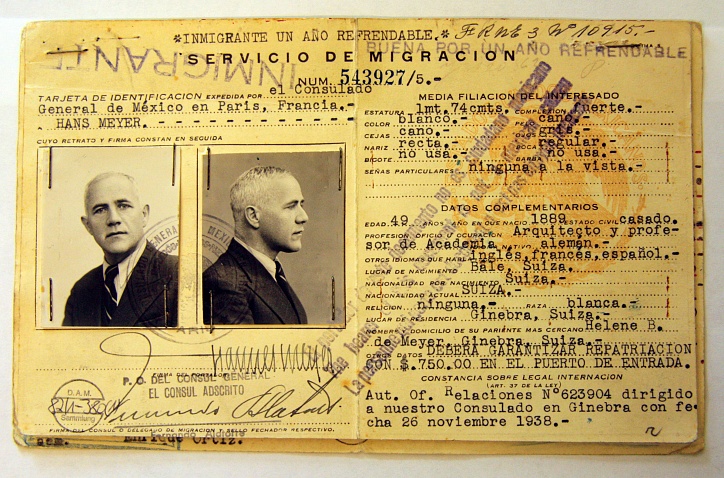 *INMIGRANTE UN AÑO REFRENDABLE.* FRNE 3 Nº 10915.-
BUENA POR UN AÑO REFRENDABLE
INMIGRANTE
SERVICIO DE MIGRACION
NUM. 543927/5.-
TARJETA DE IDENTIFICACION EXPEDIDA POR el Consulado
General de México en Paris, Francia.-
HANS MEYER.
CUYO RETRATO Y FIRMA CONSTAN EN SEGUIDA
P. O. DEL CONSUL GENERAL
EL CONSUL ADSCRITO
D.A.M.
Sammlung
FIRMA DEL CONSUL O DELEGADO DE MIGRACION Y SELLO FECHADOR RESPECTIVO.
Enrique Ortiz.
MEDIA FILIACION DEL INTERESADO
ESTATURA 1mt.74cmts. COMPLEXION fuerte.-
COLOR blanco.- PELO cano.-
CEJAS cano.- OJOS gris.-
NARIZ recta.- BOCA regular.-
BIGOTE no usa.- BARBA no usa.-
SEÑAS PARTICULARES ninguna a la vista.-
DATOS COMPLEMENTARIOS
EDAD 49 AÑOS AÑO EN QUE NACIO 1889 ESTADO CIVIL casado.
PROFESION OFICIO U OCUPACION Arquitecto y profe-
sor de Academia NATIVO alemán.-
OTROS IDIOMAS QUE HABLA inglés,francés,español.-
LUGAR DE NACIMIENTO Bâle, Suiza.
NACIONALIDAD POR NACIMIENTO Suiza.-
NACIONALIDAD ACTUAL SUIZA.-
RELIGION ninguna.- RAZA blanca.-
LUGAR DE RESIDENCIA Ginebra, Suiza.-
NOMBRE Y DOMICILIO DE SU PARIENTE MAS CERCANO Helene B.
de Meyer, Ginebra, Suiza.-
OTROS DATOS DEBERA GARANTIZAR REPATRIACION
CON $.750.00 EN EL PUERTO DE ENTRADA.
CONSTANCIA SOBRE LEGAL INTERNACION
(ART. 37 DE LA LEY)
Aut. Of. Relaciones Nº623904 dirigido
a nuestro Consulado en Ginebra con fe
cha 26 noviembre 1938.-